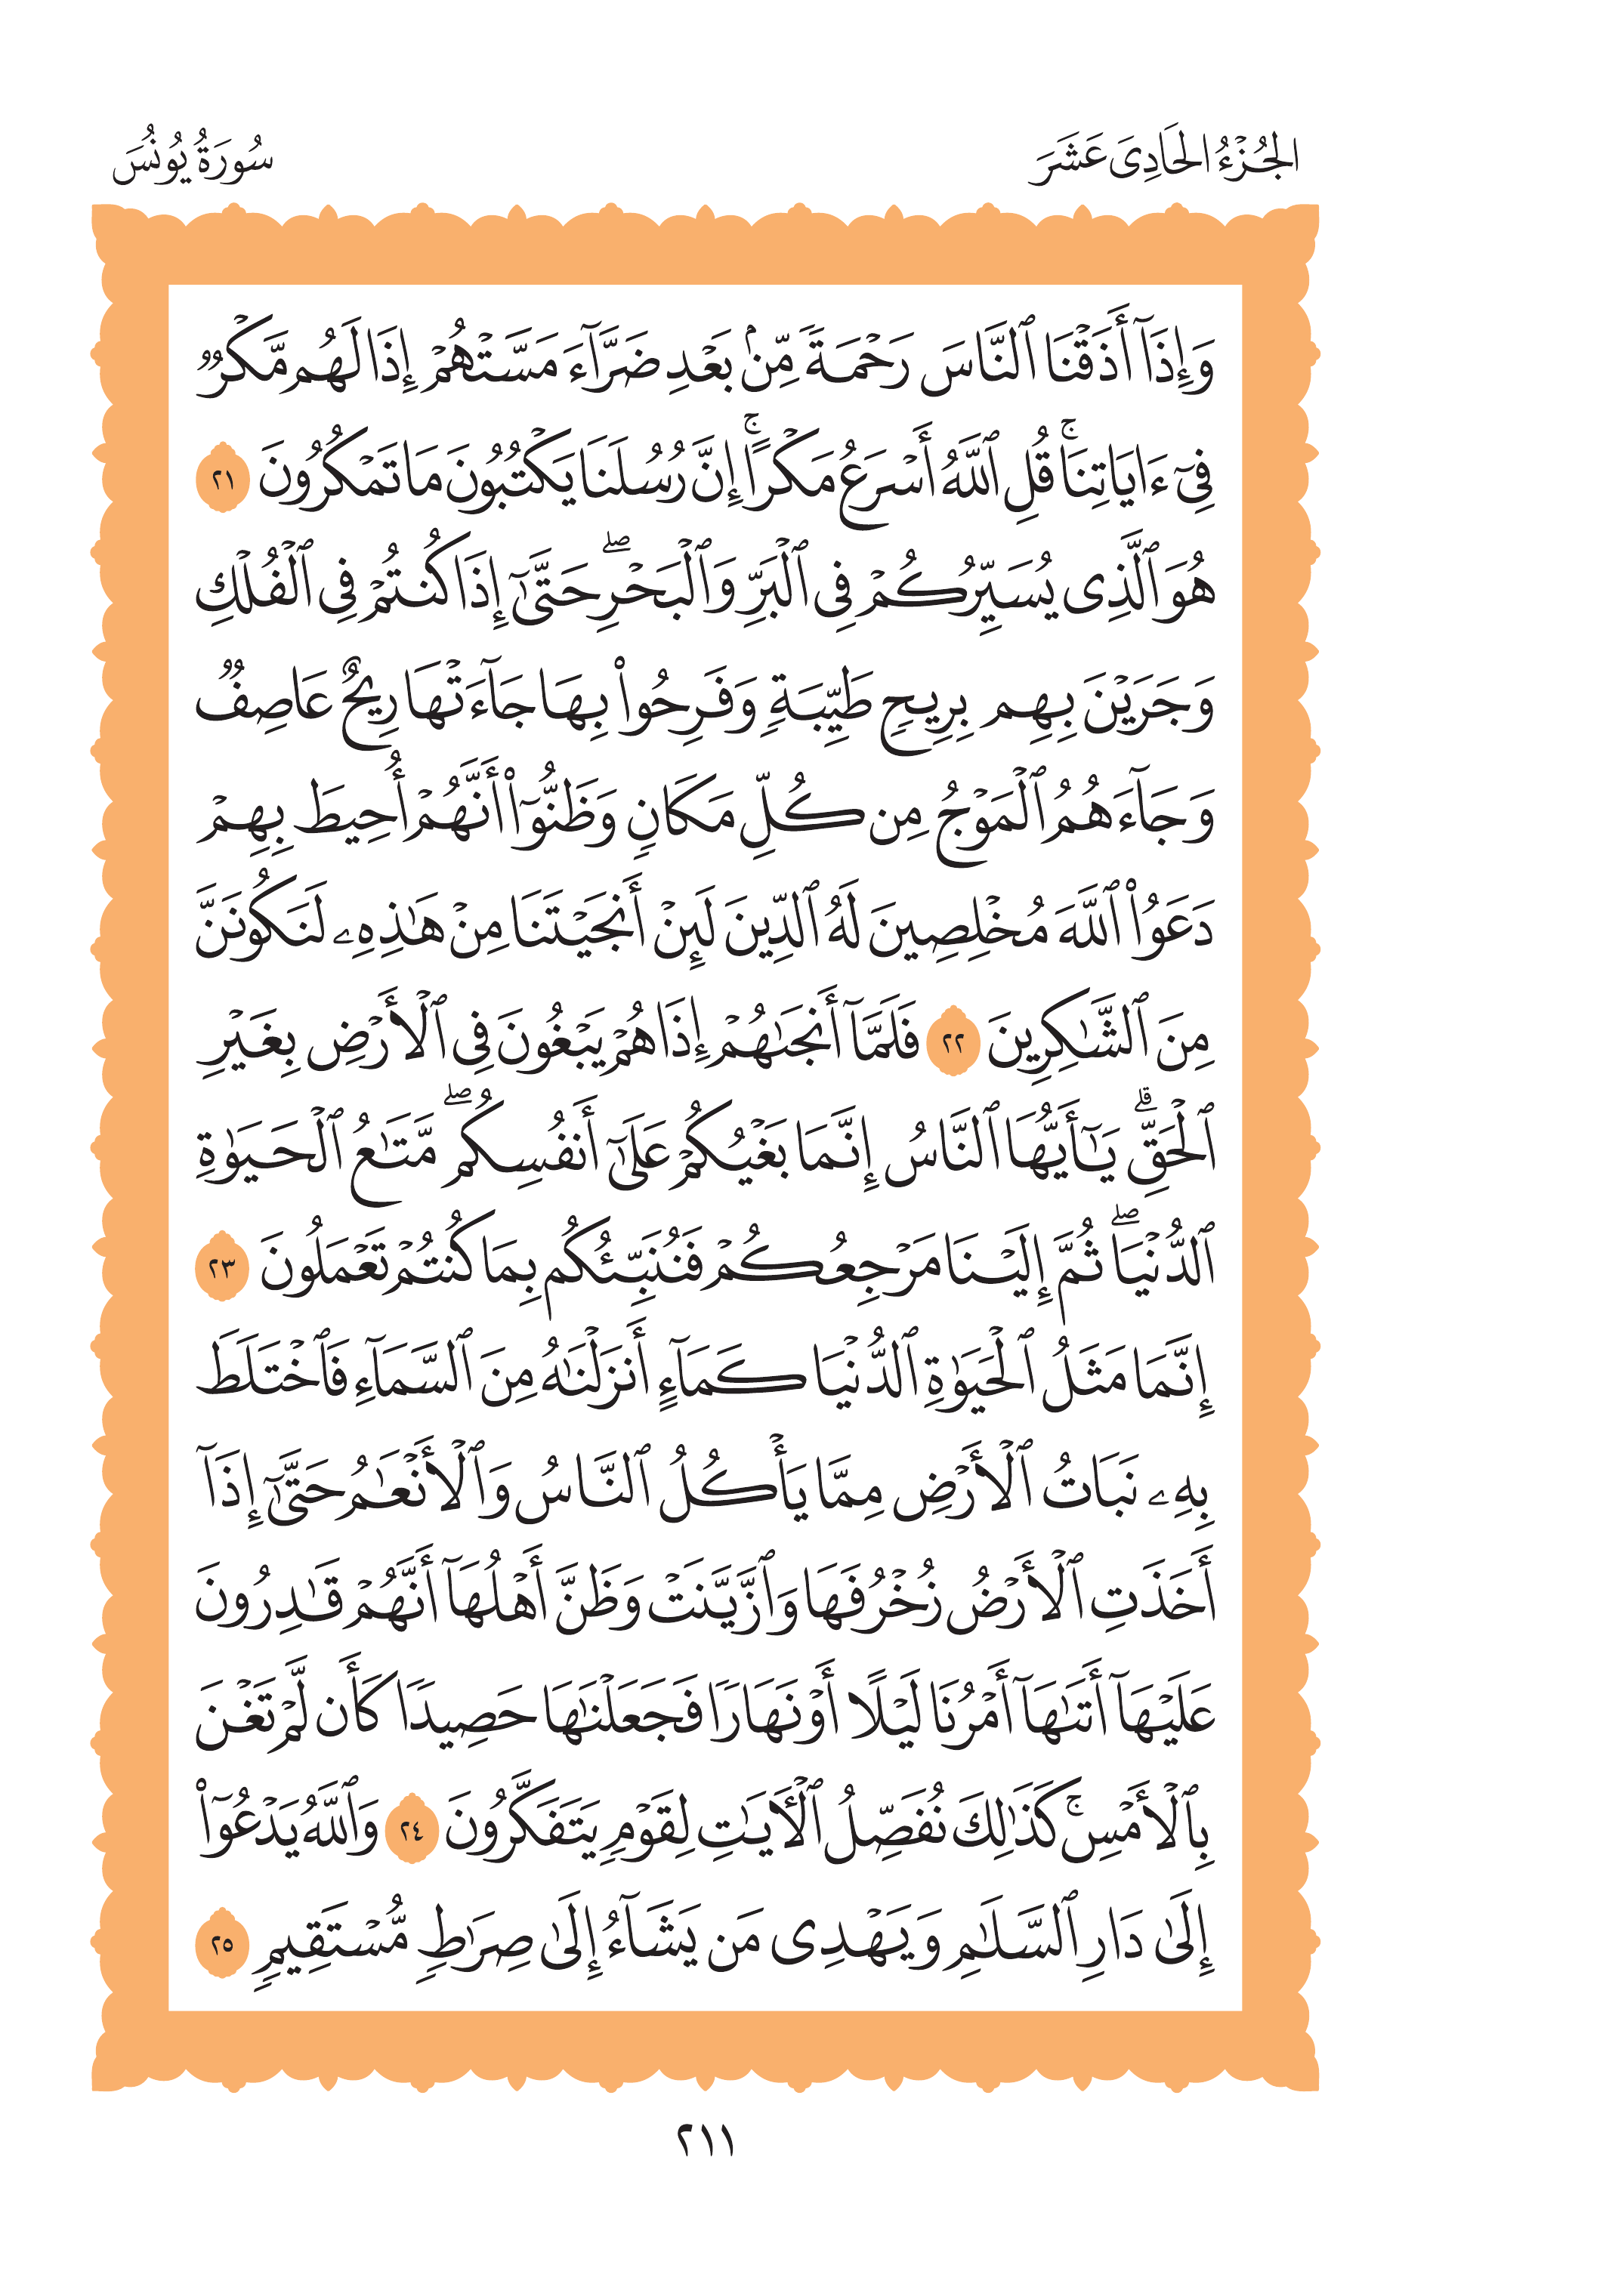 الجُزْءُ الحَادِىَ عَشَرَ
سُورَةُ يُونُسَ
وَإِذَآ أَذَقْنَا ٱلنَّاسَ رَحْمَةً مِّنۢ بَعْدِ ضَرَّآءَ مَسَّتْهُمْ إِذَا لَهُم مَّكْرٌ
فِىٓ ءَايَاتِنَا ۚ قُلِ ٱللَّهُ أَسْرَعُ مَكْرًا ۚ إِنَّ رُسُلَنَا يَكْتُبُونَ مَا تَمْكُرُونَ ٢١
هُوَ ٱلَّذِى يُسَيِّرُكُمْ فِى ٱلْبَرِّ وَٱلْبَحْرِ ۖ حَتَّىٰٓ إِذَا كُنتُمْ فِى ٱلْفُلْكِ
وَجَرَيْنَ بِهِم بِرِيحٍ طَيِّبَةٍ وَفَرِحُوا۟ بِهَا جَآءَتْهَا رِيحٌ عَاصِفٌ
وَجَآءَهُمُ ٱلْمَوْجُ مِن كُلِّ مَكَانٍ وَظَنُّوٓا۟ أَنَّهُمْ أُحِيطَ بِهِمْ
دَعَوُا۟ ٱللَّهَ مُخْلِصِينَ لَهُ ٱلدِّينَ لَئِنْ أَنجَيْتَنَا مِنْ هَٰذِهِۦ لَنَكُونَنَّ
مِنَ ٱلشَّٰكِرِينَ ٢٢ فَلَمَّآ أَنجَىٰهُمْ إِذَا هُمْ يَبْغُونَ فِى ٱلْأَرْضِ بِغَيْرِ
ٱلْحَقِّ ۗ يَٰٓأَيُّهَا ٱلنَّاسُ إِنَّمَا بَغْيُكُمْ عَلَىٰٓ أَنفُسِكُم ۖ مَّتَٰعُ ٱلْحَيَوٰةِ
ٱلدُّنْيَا ۖ ثُمَّ إِلَيْنَا مَرْجِعُكُمْ فَنُنَبِّئُكُم بِمَا كُنتُمْ تَعْمَلُونَ ٢٣
إِنَّمَا مَثَلُ ٱلْحَيَوٰةِ ٱلدُّنْيَا كَمَآءٍ أَنزَلْنَٰهُ مِنَ ٱلسَّمَآءِ فَٱخْتَلَطَ
بِهِۦ نَبَاتُ ٱلْأَرْضِ مِمَّا يَأْكُلُ ٱلنَّاسُ وَٱلْأَنْعَٰمُ حَتَّىٰٓ إِذَآ
أَخَذَتِ ٱلْأَرْضُ زُخْرُفَهَا وَٱزَّيَّنَتْ وَظَنَّ أَهْلُهَآ أَنَّهُمْ قَٰدِرُونَ
عَلَيْهَآ أَتَىٰهَآ أَمْرُنَا لَيْلًا أَوْ نَهَارًا فَجَعَلْنَٰهَا حَصِيدًا كَأَن لَّمْ تَغْنَ
بِٱلْأَمْسِ ۚ كَذَٰلِكَ نُفَصِّلُ ٱلْـَٔايَٰتِ لِقَوْمٍ يَتَفَكَّرُونَ ٢٤ وَٱللَّهُ يَدْعُوٓا۟
إِلَىٰ دَارِ ٱلسَّلَٰمِ وَيَهْدِى مَن يَشَآءُ إِلَىٰ صِرَٰطٍ مُّسْتَقِيمٍ ٢٥
٢١١